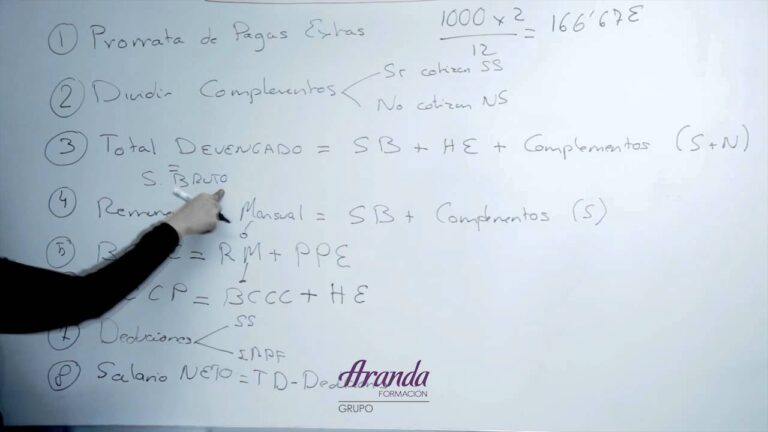 ① Prorrata de Pagas Extras 1000 x 2 / 12 = 166'67€
② Dividir Complementos
Si cotizan SS
No cotizan NS
③ Total DEVENGADO = SB + HE + Complementos (S+N)
=
S. BRUTO
④ Mensual = SB + Complementos (S)
⑤ = RM + PPE
CP = BCCC + HE
Deduciones
SS
IRPF
⑧ Salario NETO = TD - Deduciones
Aranda
FORMACIÓN
GRUPO